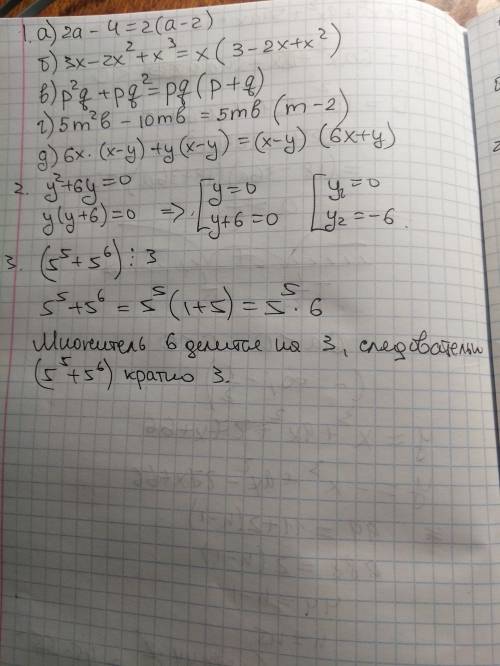 1. а) 2a - 4 = 2(a - 2)
б) 3x - 2x² + x³ = x(3 - 2x + x²)
в) p²q + pq² = pq(p + q)
г) 5m²b - 10mb = 5mb (m - 2)
д) 6x · (x-y) + y(x-y) = (x-y) (6x+y)
2. y² + 6y = 0
y(y+6) = 0 => [y = 0 [y₁ = 0
y+6 = 0 y₂ = -6.
3. (5⁵ + 5⁶) ⋮ 3
5⁵ + 5⁶ = 5⁵ (1+5) = 5⁵ · 6
Множитель 6 делится на 3, следовательн
(5⁵ + 5⁶) кратно 3.